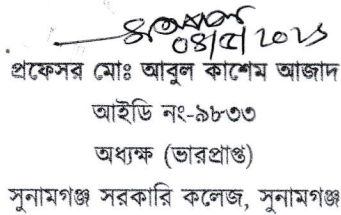 ০৪/৫/২০২১
প্রফেসর মোঃ আবুল কাশেম আজাদ
আইডি নং-৯৮৩৩
অধ্যক্ষ (ভারপ্রাপ্ত)
সুনামগঞ্জ সরকারি কলেজ, সুনামগঞ্জ